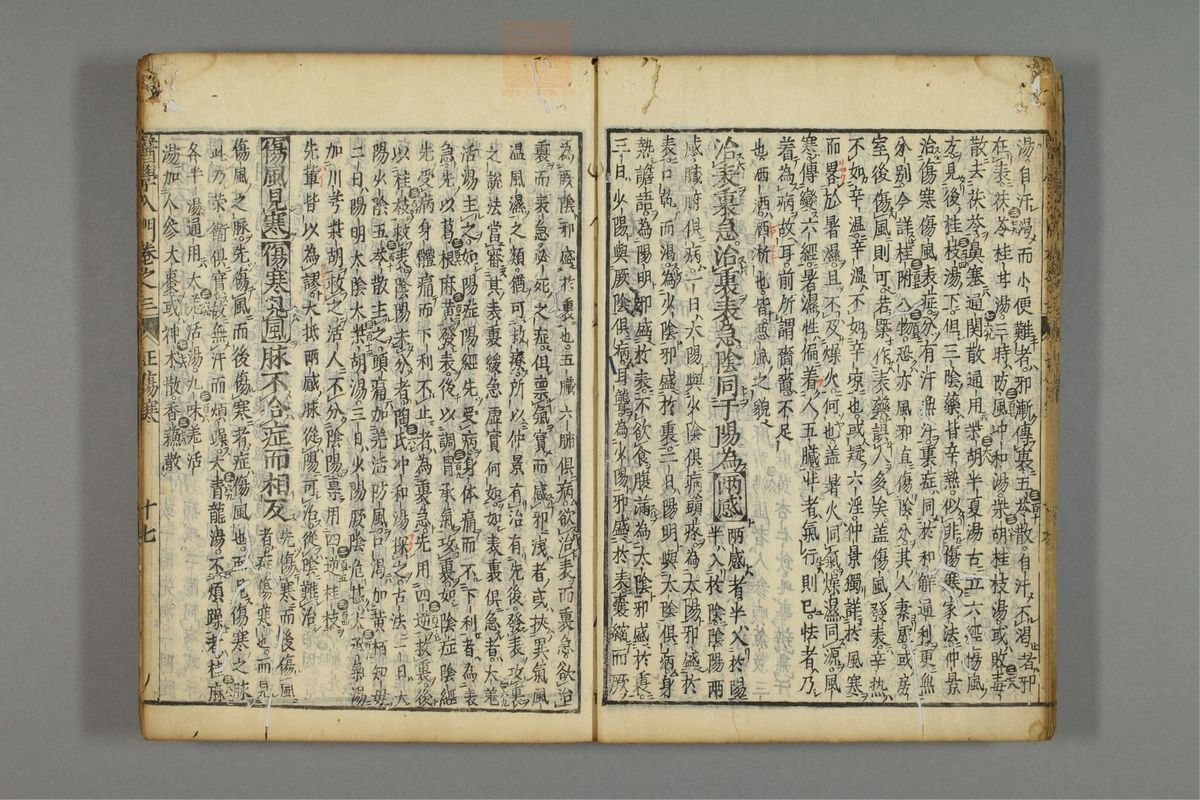 湯自汗渴而小便難者邪漸傳裏五苓散自汗不渴者邪
在表茯苓桂甘湯三時防風冲和湯柴胡桂枝湯或敗毒
散去茯苓鼻塞通関散通用柴胡半夏湯古云六經傷風
方見後桂枝湯下但三陰藥皆辛熱似非傷寒家法仲景
治傷寒傷風表症分有汗無汗裏症同於和解通利更無
分別今詳桂附八物恐亦風邪直傷陰分其人素虛或房
室後傷風則可若舉作表藥誤人多矣盖傷風發表辛熱
不如辛溫辛溫不如辛凉也或疑六淫仲景獨詳於風寒
而畧於暑濕且不及燥火何也盖暑火同氣燥濕同源風
寒傳變六經暑濕性偏着人五臟壮者氣行則已怯者乃
着為病故耳前所謂嗇嗇不足
也洒洒淅淅也皆惡風之貌
治表裏急治裏表急陰同于陽為兩感
兩感者半入於陽
半入於陰陰陽兩
感臟腑俱病一日太陽與少陰俱病頭疼為太陽邪盛於
表口乾而渴為少陰邪盛於裏二日陽明與太陰俱病身
熱譫語為陽明邪盛於表不欲食腹滿為太陰邪盛於裏
三日少陽與厥陰俱病耳聾為少陽邪盛於表囊縮而厥
為厥陰邪盛於裏也五臟六腑俱病欲治表而裏急欲治
裏而表急必死之症但稟氣實而感邪淺者或挾異氣風
溫風濕之類猶可救療所以仲景有治有先後發表攻裏
之說法當審其表裏緩急虛實何如如表裏俱急者大羌
活湯主之如陽症陽經先受病身体痛而不下利者為表
急先以葛根麻黃發表後以調胃承氣攻裏如陰症陰經
先受病身體痛而下利不止者為裏急先用四逆救裏後
以桂枝救表陰陽未分者陶氏冲和湯探之古法一日太
陽少陰五苓散主之頭痛加羌活防風口渴加黃栢知母
二日陽明太陰大柴胡湯三日少陽厥陰危甚大承氣湯
加川芎柴胡救之活人不分陰陽專用四逆桂枝
先輩皆以為謬大抵兩感脉從陽可治從陰難治
傷風見寒傷寒見風脉不合症而相反
先傷寒而後傷風
者症傷寒也而見
傷風之脉先傷風而後傷寒者症傷風也而見傷寒之脉
此乃荣衛俱實故無汗而煩躁大青龍湯不煩躁者桂麻
各半湯通用大羌活湯九味羌活
湯加人參大棗或神术散香蘇散
醫學入門卷之三
正傷寒
十七